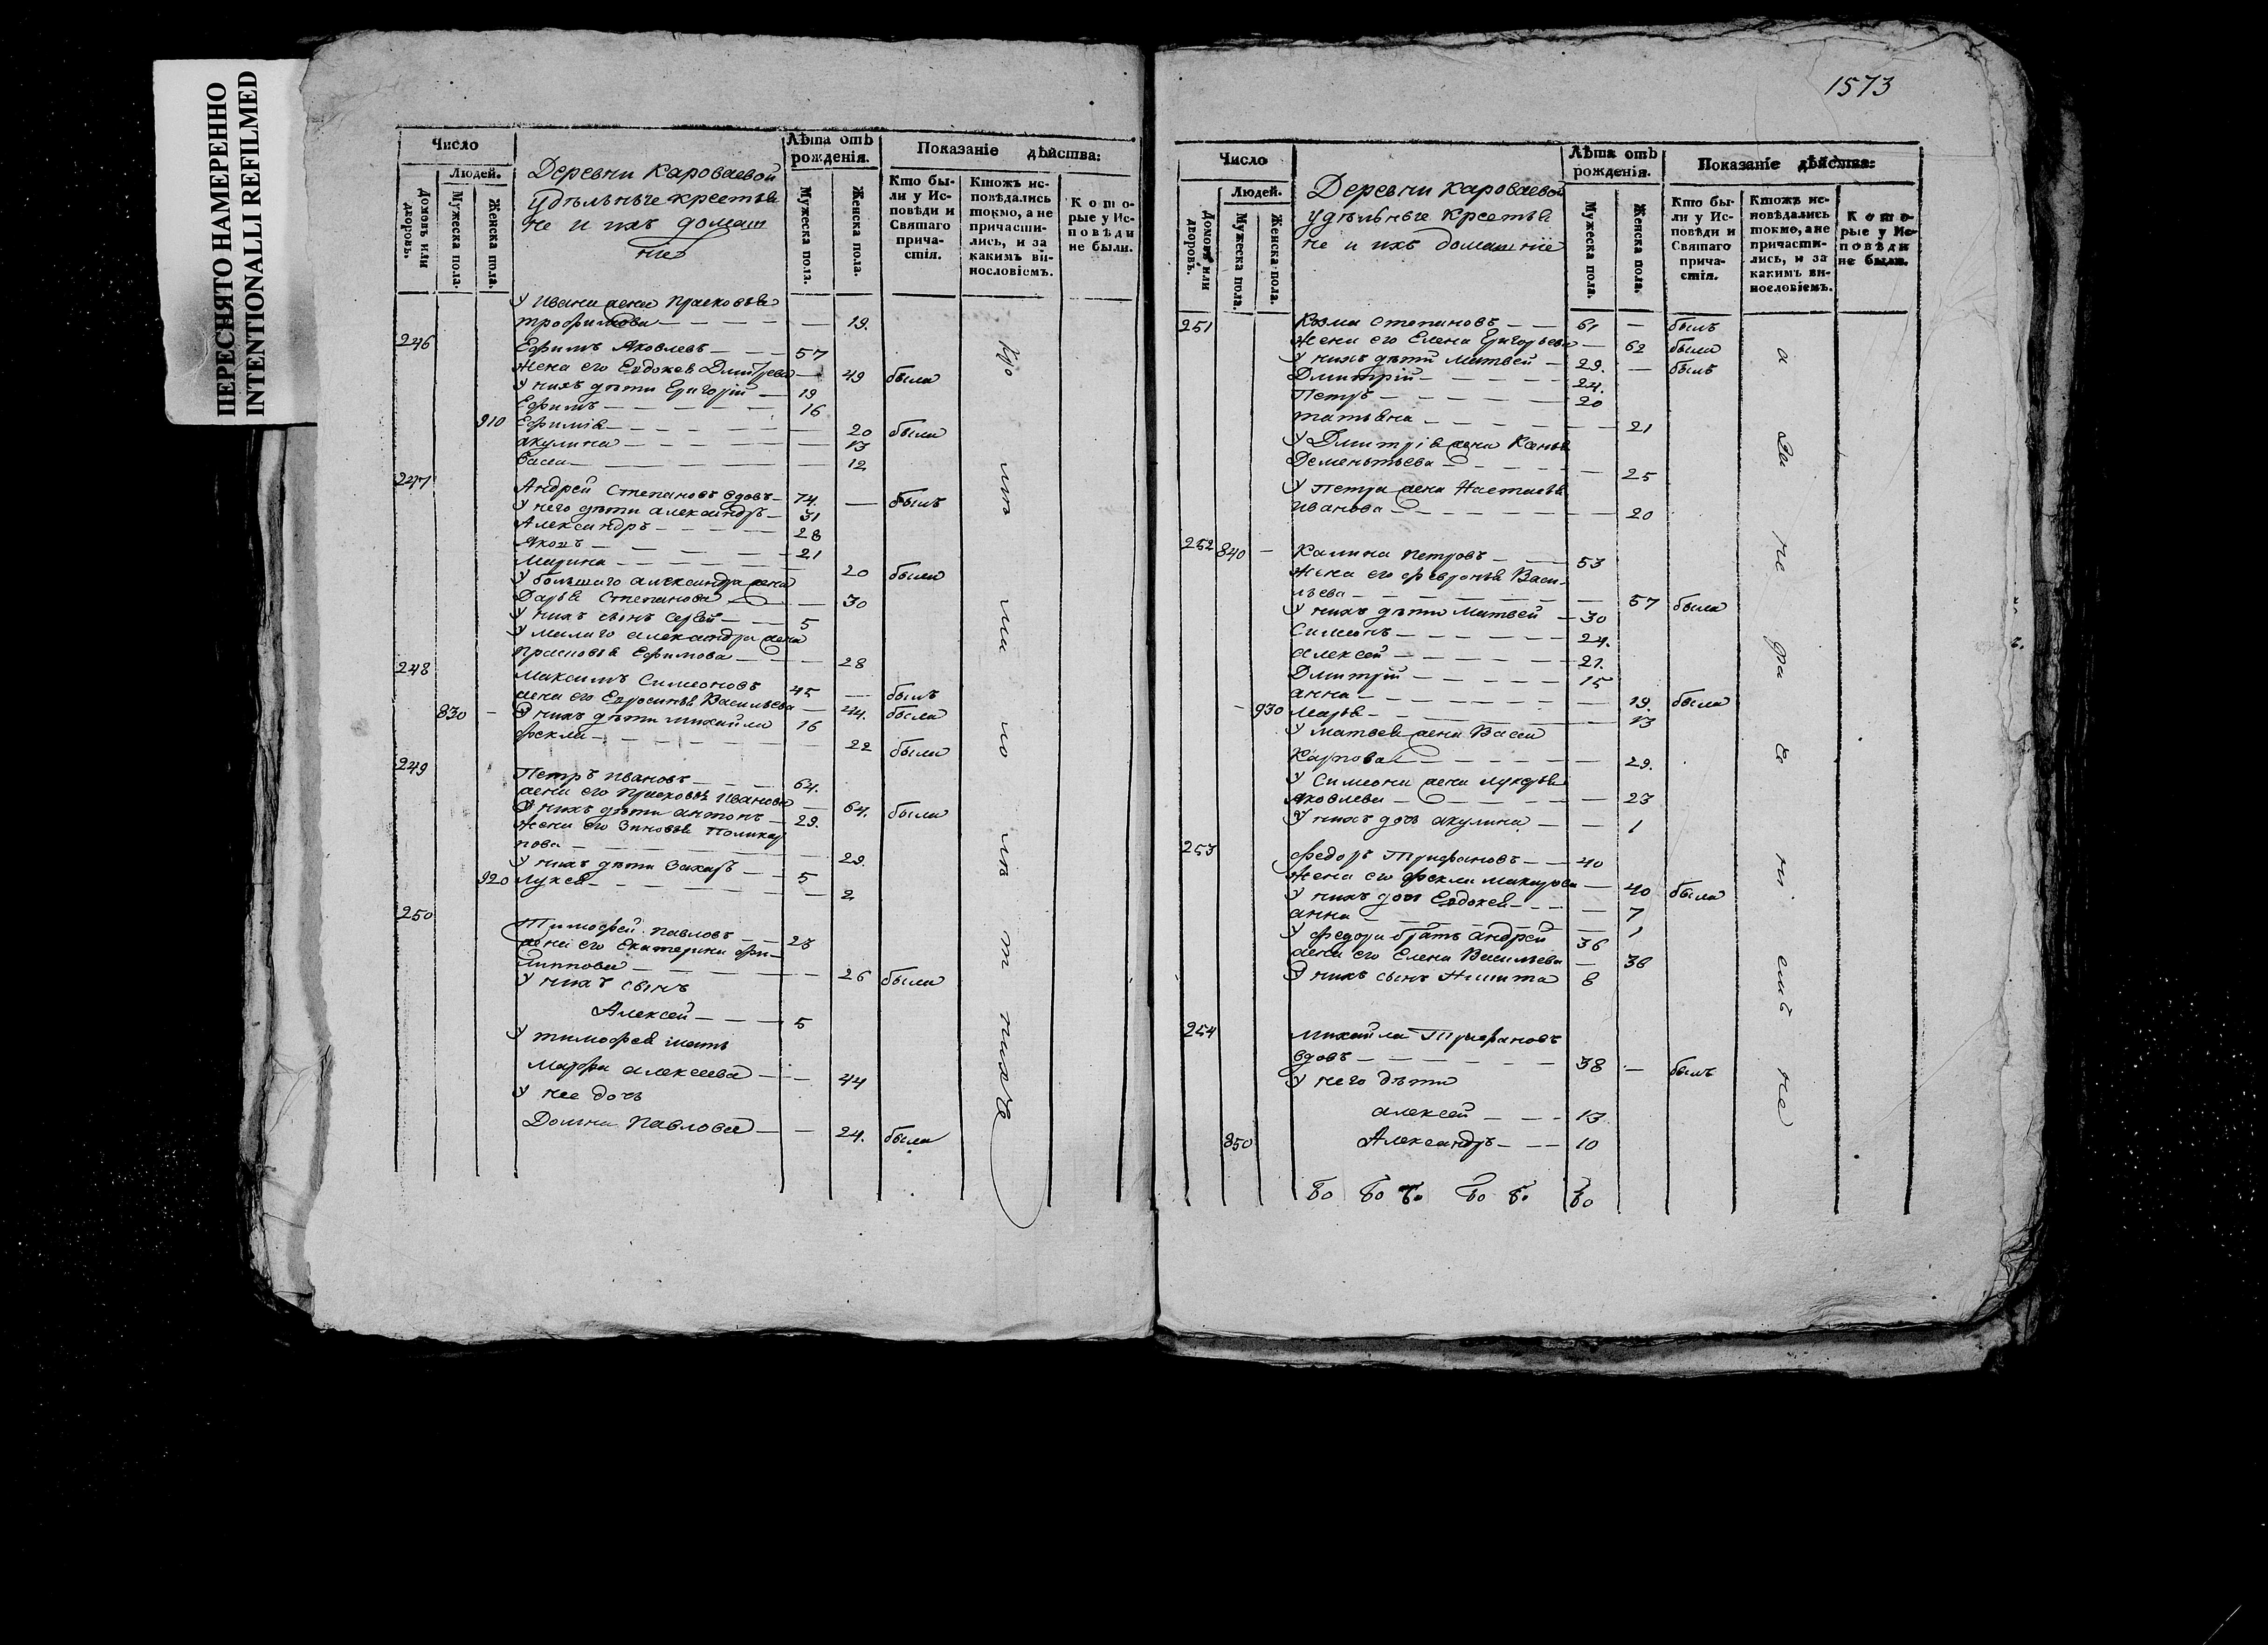 ПЕРЕСНЯТО НАМЕРЕННО
INTENTIONALLI REFILMED
Число
Лѣта отъ рожденія.
Показаніе дѣйства:
Людей.
Домовъ или дворовъ.
Мужеска пола.
Женска пола.
Деревни Короваевой
удѣльные крестья
не и ихъ домаш
ніе
Мужеска пола.
Женска пола.
Кто бы-
ли у Ис-
повѣди и
Святаго
прича-
стія.
Ктожъ ис-
повѣдались
токмо, а не
причасти-
лись, и за
какимъ ви-
нословіемъ.
Кото-
рые у Ис-
повѣди
не были.
У Ивана жена Прасковья
Трофимова 19.
246 Ефимъ Яковлевъ 57
Жена его Евдокея Дмитрева 49 была
У нихъ дѣти Григорій 19
Ефимъ 16
910 Ефимія 20 была
Акулина 13
Васса 12
247 Андрей Степановъ вдовъ 74. былъ
У него дѣти Александръ 31
Александръ 28
Яковъ 21
Марина 20 была
У большаго Александра жена
Дарья Степанова 30
У нихъ сынъ Сергей 5
У малаго Александра жена
Прасковья Ефимова 28
248 Максимъ Симеоновъ 45 былъ
жена его Ефросинья Васильева 44. была
830 У нихъ дѣти Михайла 16
Фекла 22 была
249 Петръ Ивановъ 64.
жена его Прасковья Иванова 64. была
У нихъ дѣти Антонъ 29.
Жена его Зиновья Поликар
пова 29.
У нихъ дѣти Захаръ 5
920 Лукея 2
250 Тимофей Павловъ 23
жена его Екатерина Фи-
липпова 26 была
У нихъ сынъ
Алексей 5
У Тимофея мать
Марфа Алексеева 44
У нее дочь
Домна Павлова 24. была
1573
Число
Лѣта отъ рожденія.
Показаніе дѣйства:
Людей.
Домовъ или дворовъ.
Мужеска пола.
Женска пола.
Деревни Короваевой
удѣльные крестья
не и ихъ домашніе
Мужеска пола.
Женска пола.
Кто бы-
ли у Ис-
повѣди и
Святаго
прича-
стія.
Ктожъ ис-
повѣдались
токмо, а не
причасти-
лись, и за
какимъ ви-
нословіемъ.
Кото-
рые у Ис-
повѣди
не были.
251 Козма Степановъ 61 былъ
Жена его Елена Григорьева 62 была
У нихъ дѣти Матвей 29. былъ
Дмитрій 24.
Петръ 20
Татьяна 21
У Дмитрія жена Ксенья
Дементьева 25
У Петра жена Настасья
Иванова 20
252 840 Калина Петровъ 53
Жена его Февронья Васи-
льева 57 была
У нихъ дѣти Матвей 30
Симеонъ 24.
Алексей 21.
Дмитрій 15
Анна 19. была
930 Марья 13
У Матвея жена Васса
Карпова 29.
У Симеона жена Лукерья
Яковлева 23
У нихъ дочь Акулина 1
253 Федоръ Трифановъ 40
Жена его Фекла Макарова 40 была
У нихъ дочь Евдокея 7
Анна 1
У Федора братъ Андрей 36
жена его Елена Васильева 38
У нихъ сынъ Никита 8
254 Михайла Трифановъ
вдовъ 38 былъ
У него дѣти
Алексей 13
850 Александръ 10